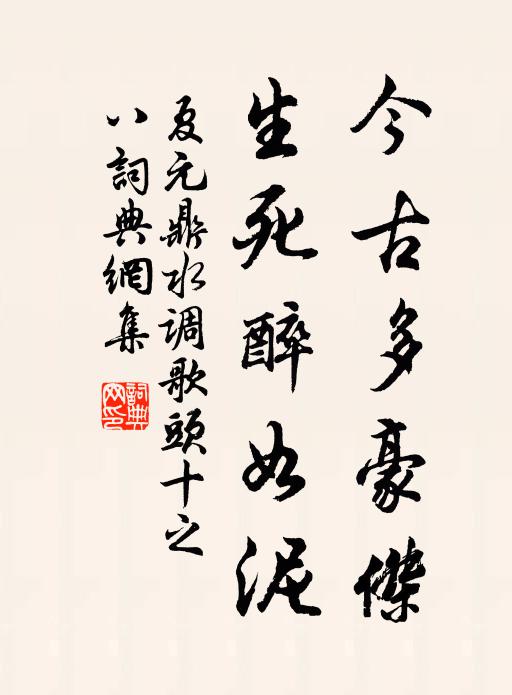 今古多豪傑
生死醉如泥
夏元鼎水调歌頭十之
八詞典網集
詞典网印